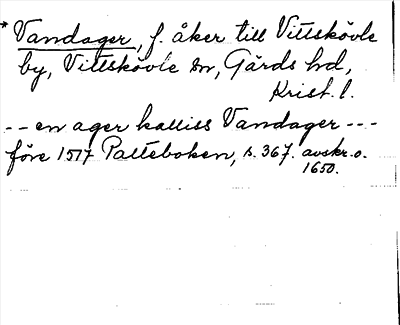 * Vandager, f. åker till Vittskövle
by, Vittskövle sn, Gärds hd,
Krist. l.
-- en ager kalliss Vandager ---
före 1517 Palteboken, s. 367. avskr. o.
1650.